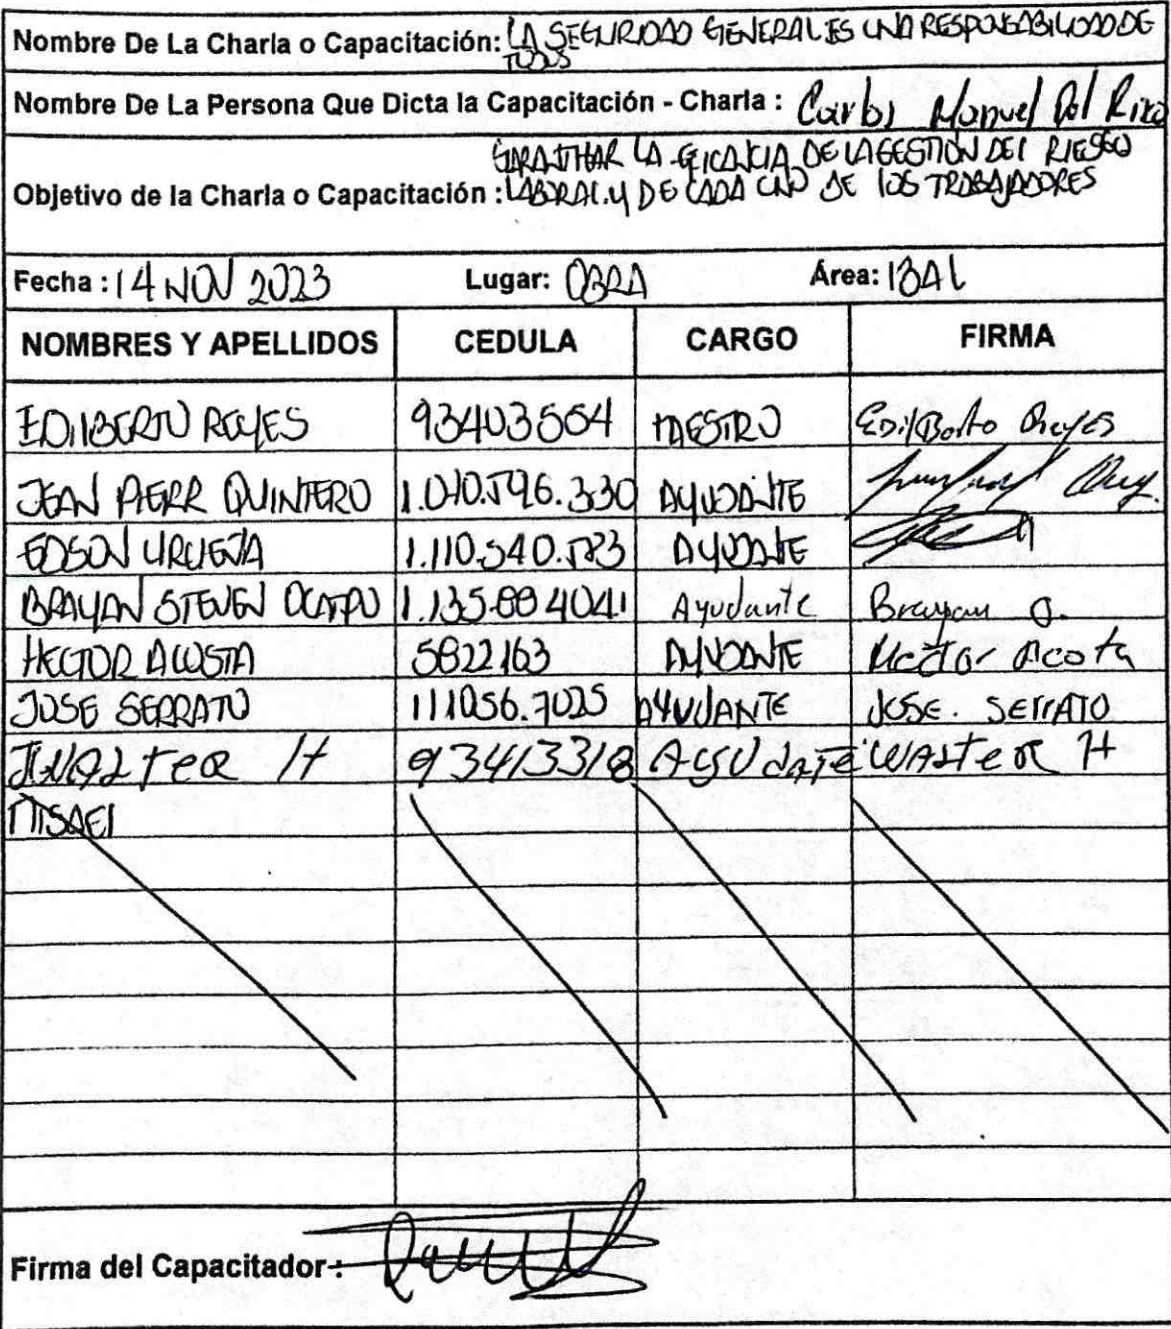 Nombre De La Charla o Capacitación: LA SEGURIDAD GENERAL ES UNA RESPONSABILIDAD DE
TODOS
Nombre De La Persona Que Dicta la Capacitación - Charla : Carlos Manuel Del Rio
GARANTIZAR LA EFICANCIA DE LA GESTION DEL RIESGO
Objetivo de la Charla o Capacitación : LABORAL. Y DE CADA UNO DE LOS TRABAJADORES
Fecha : 14 NOV 2023 Lugar: OBRA Área: IBAL
NOMBRES Y APELLIDOS CEDULA CARGO FIRMA
EDILBERTO REYES 93403564 MAESTRO Edilberto Reyes
JEAN PIERR QUINTERO 1.010.596.330 AYUDANTE
EDSON URUEÑA 1.110.540.583 AYUDANTE
BRAYAN STEVEN OCAMPO 1.135.884041 Ayudante Brayan O.
HECTOR ACOSTA 5822163 AYUDANTE Hector Acosta
JOSE SERRATO 111056.7025 AYUDANTE JOSE. SERRATO
WALTER H 93413318 AyUdaTe WALTER H
MISAEl
Firma del Capacitador :